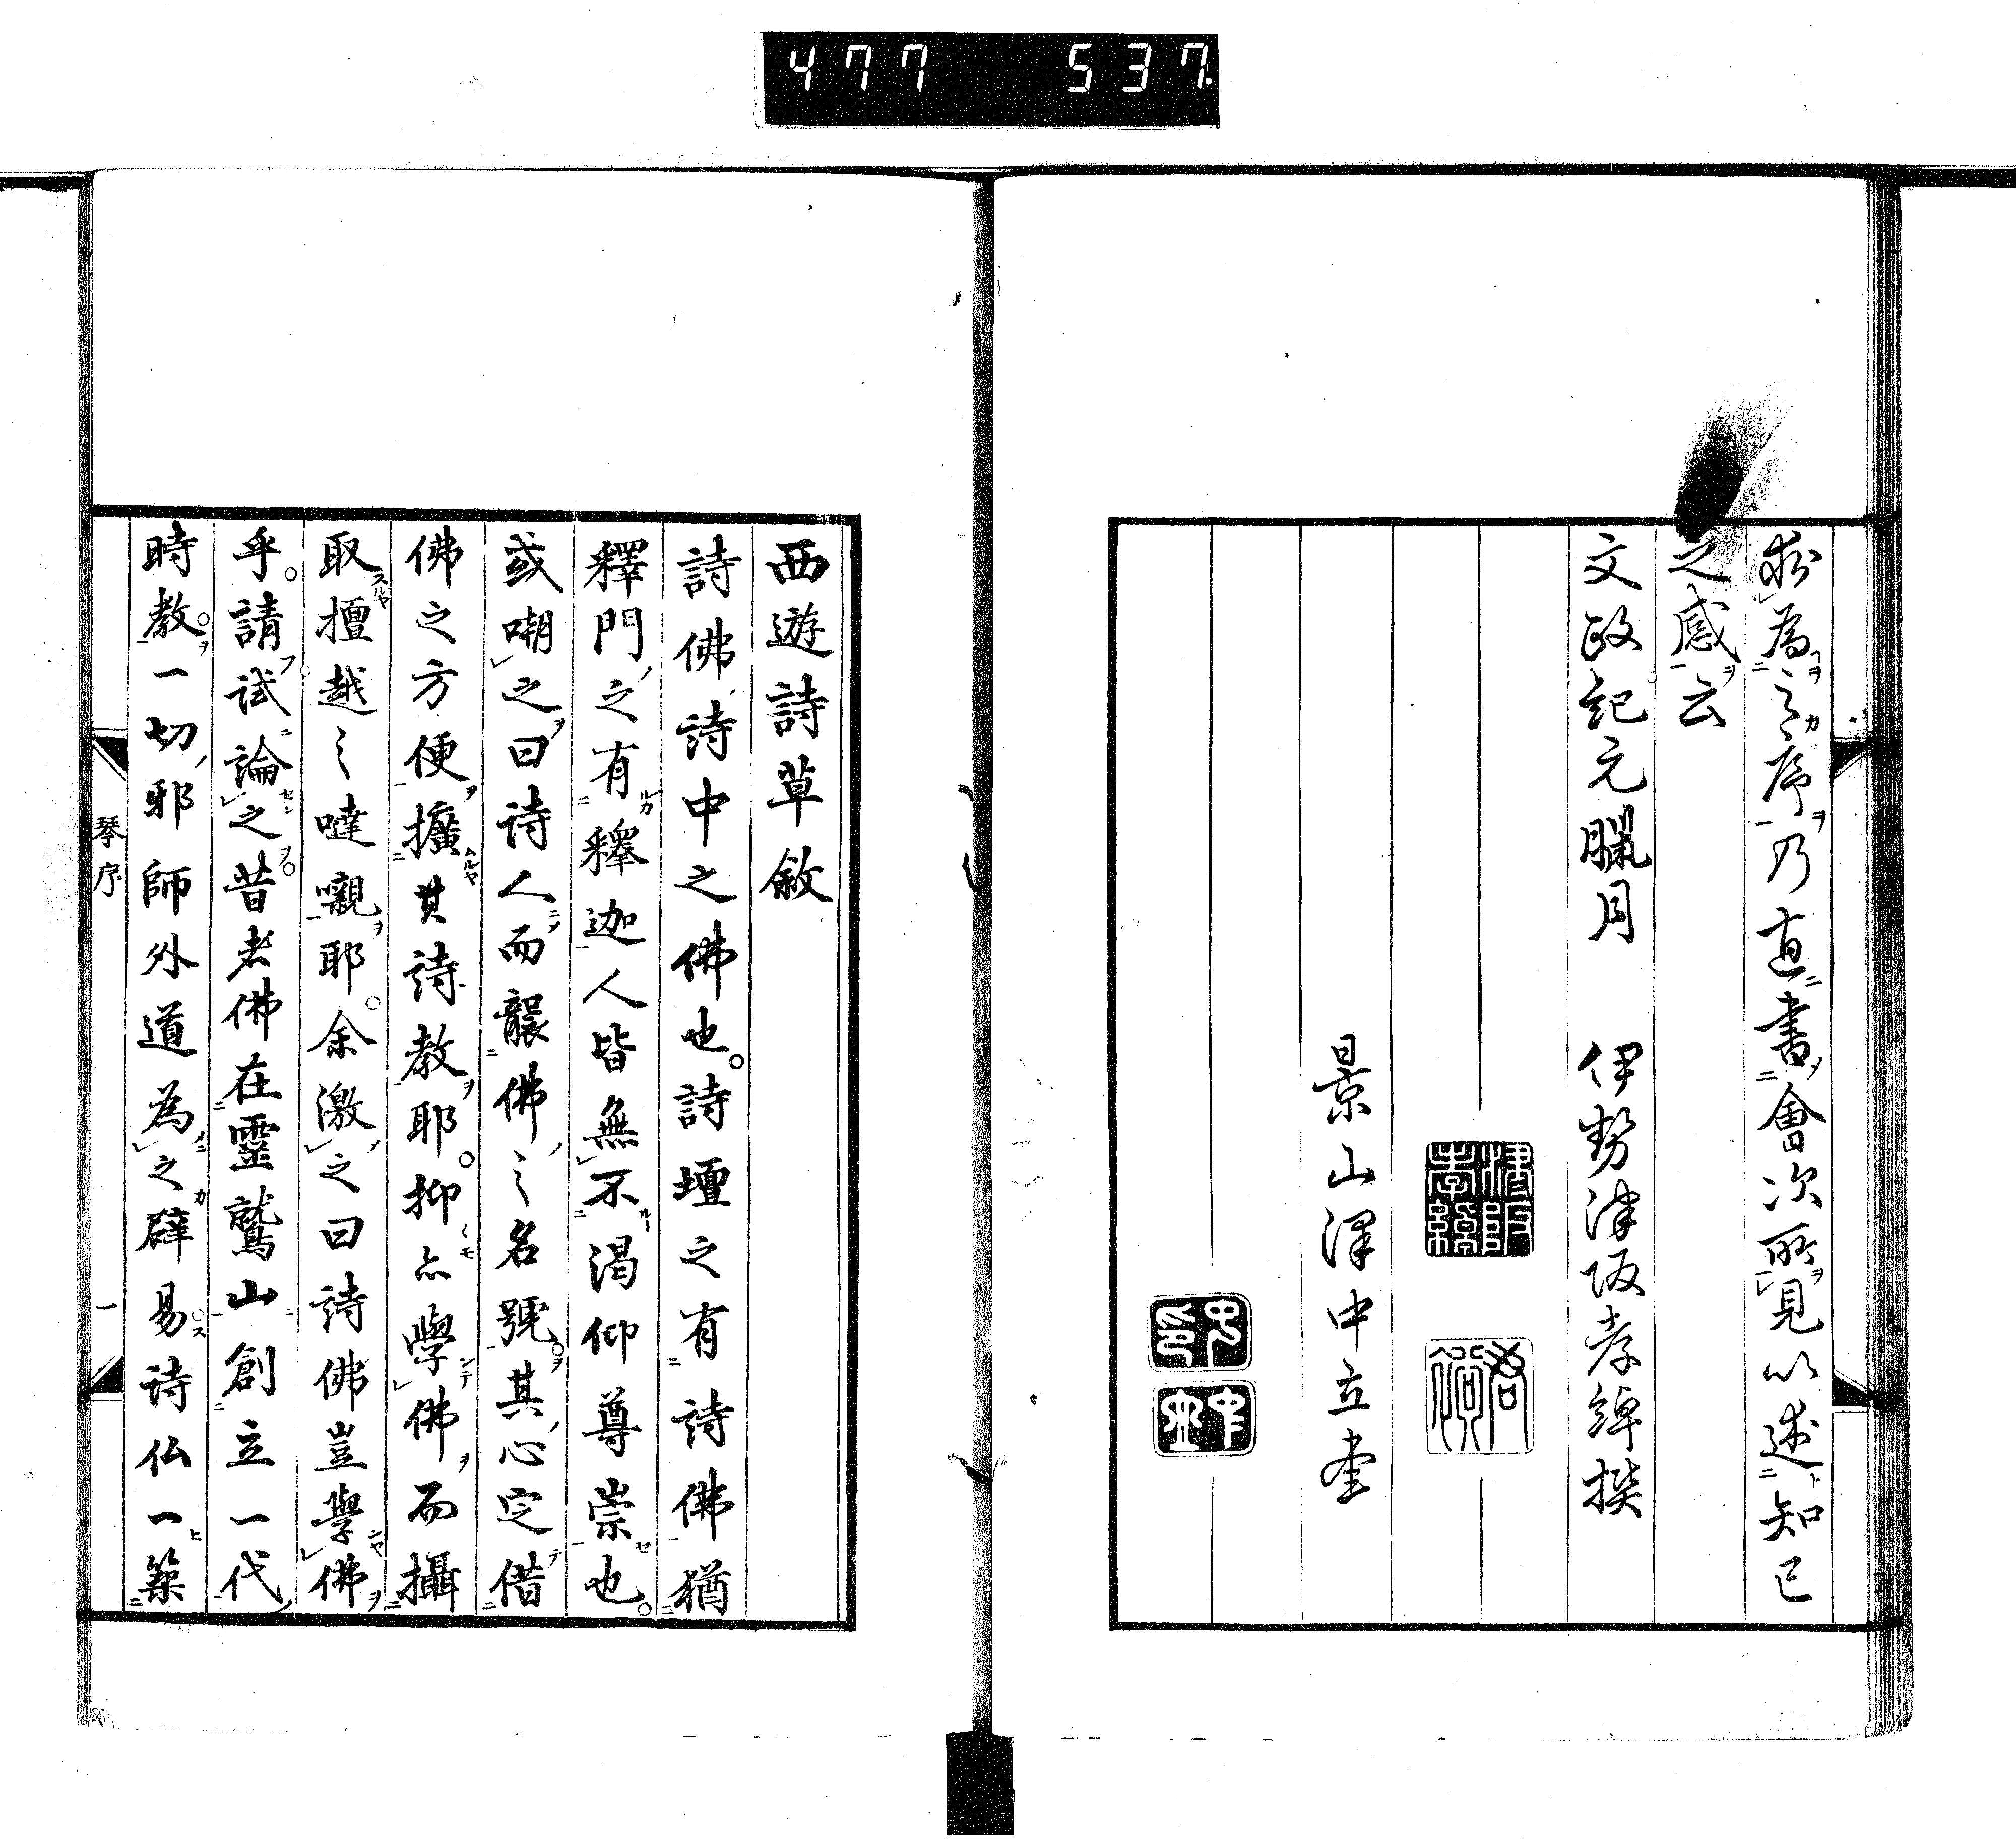 477 537.
於為之序乃直書會次所見以述知已
之感云
文政紀元臘月 伊勢津阪孝綽撰
津阪孝綽
景山澤中立書
西遊詩草敘
詩佛詩中之佛也。詩壇之有詩佛猶
釋門之有釋迦人皆無不渇仰尊崇也。
或嘲之曰詩人而襲佛之名號其心定借
佛之方便擴其詩教耶。抑亦學佛而攝
取擅越之噠嚫耶。余激之曰詩佛豈學佛
乎。請試論之昔老佛在靈鷲山創立一代
時教。一切邪師外道為之辟易詩仏一築
琴序
一